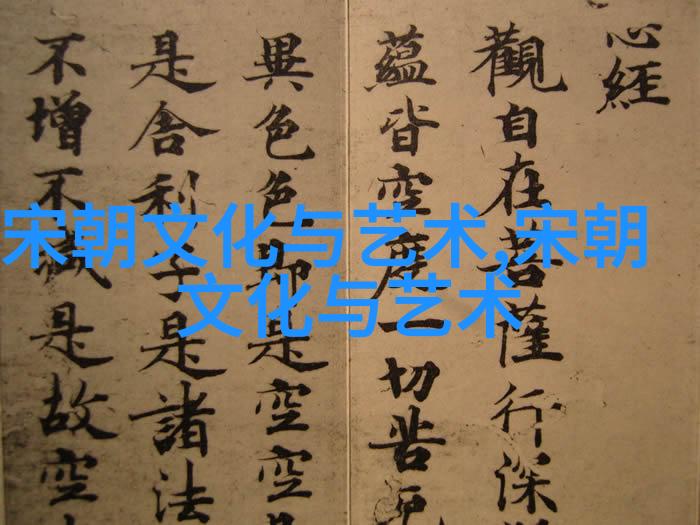 心經
觀自在菩薩行深
蘊皆空度一切苦厄
異色色即是空空
是舍利子是諸法
不增不減是故空
宋朝文化与艺术,宋朝
文化与艺术